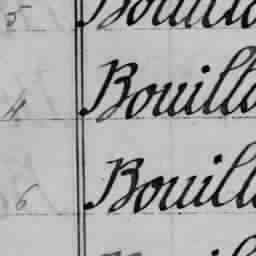 5 Bouillo
4 Bouillo
6 Bouill